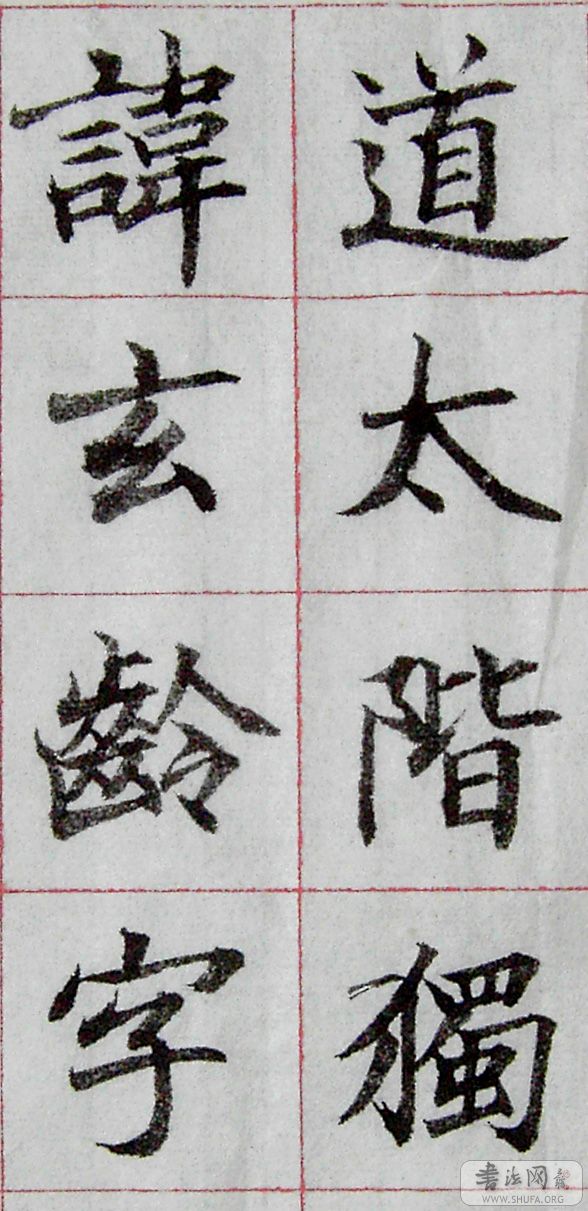 道太階獨
諱玄齡字
书法网
WWW.SHUFA.ORG